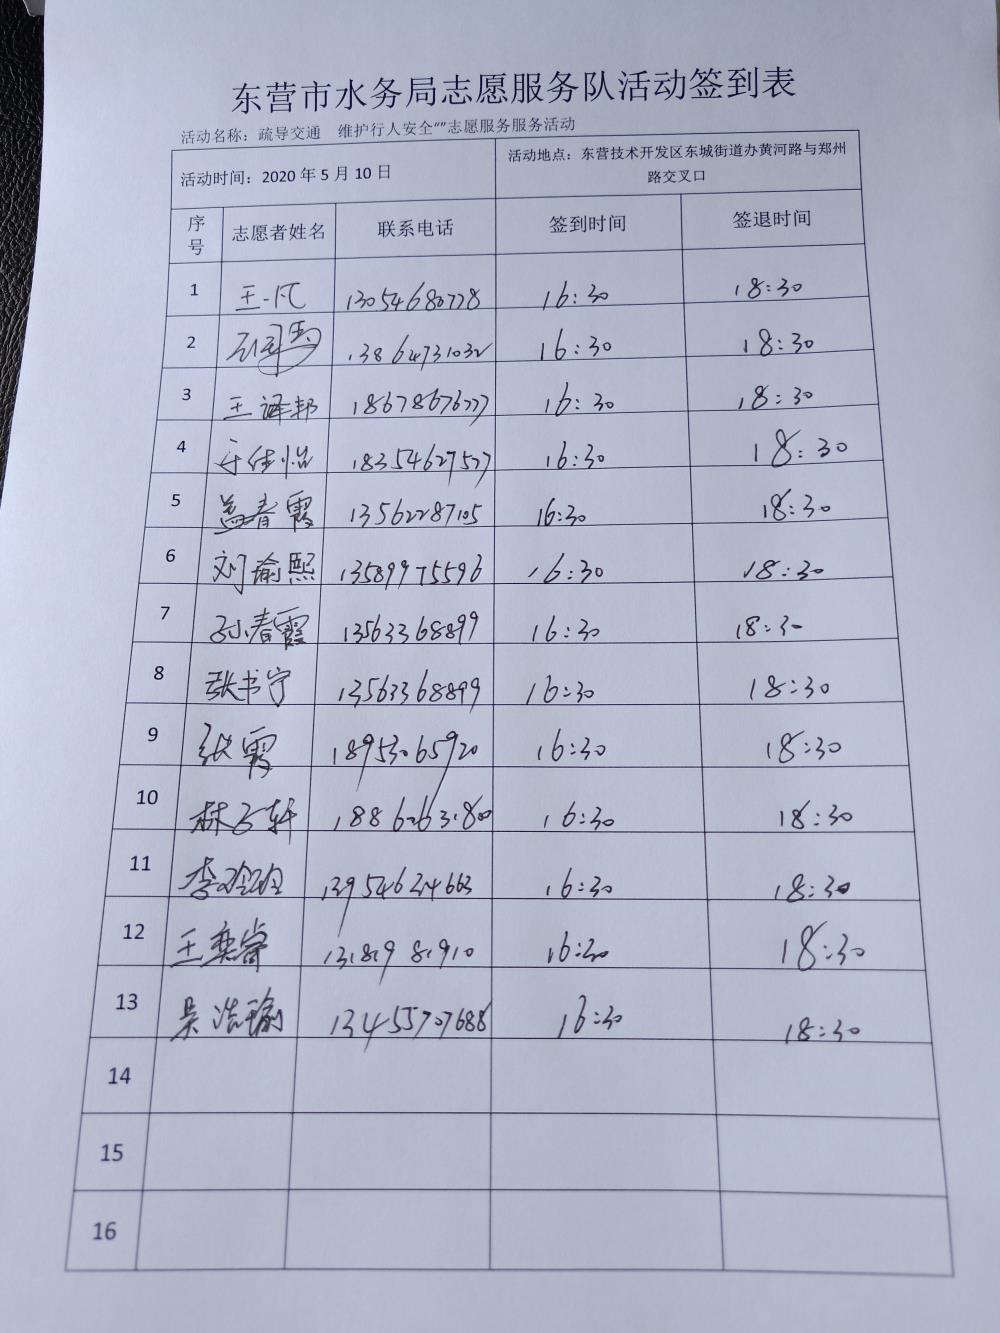 东营市水务局志愿服务队活动签到表
活动名称：疏导交通 维护行人安全“”志愿服务服务活动
活动时间：2020 年 5 月 10 日 活动地点：东营技术开发区东城街道办黄河路与郑州
路交叉口
序号 志愿者姓名 联系电话 签到时间 签退时间
1 王一凡 13054680778 16:30 18:30
2 13864731032 16:30 18:30
3 王译邦 18678676777 16:30 18:30
4 于佳怡 18354627527 16:30 18:30
5 盖春霞 13562287105 16:30 18:30
6 刘瑜熙 13589975596 16:30 18:30
7 孙春霞 13563368899 16:30 18:30
8 张书宁 13563368899 16:30 18:30
9 张霞 18953065920 16:30 18:30
10 林子轩 16:30 18:30
11 李玲玲 16:30 18:30
12 王奕睿 18:30
13 吴浩瑜 13455707688 16:30 18:30
14
15
16